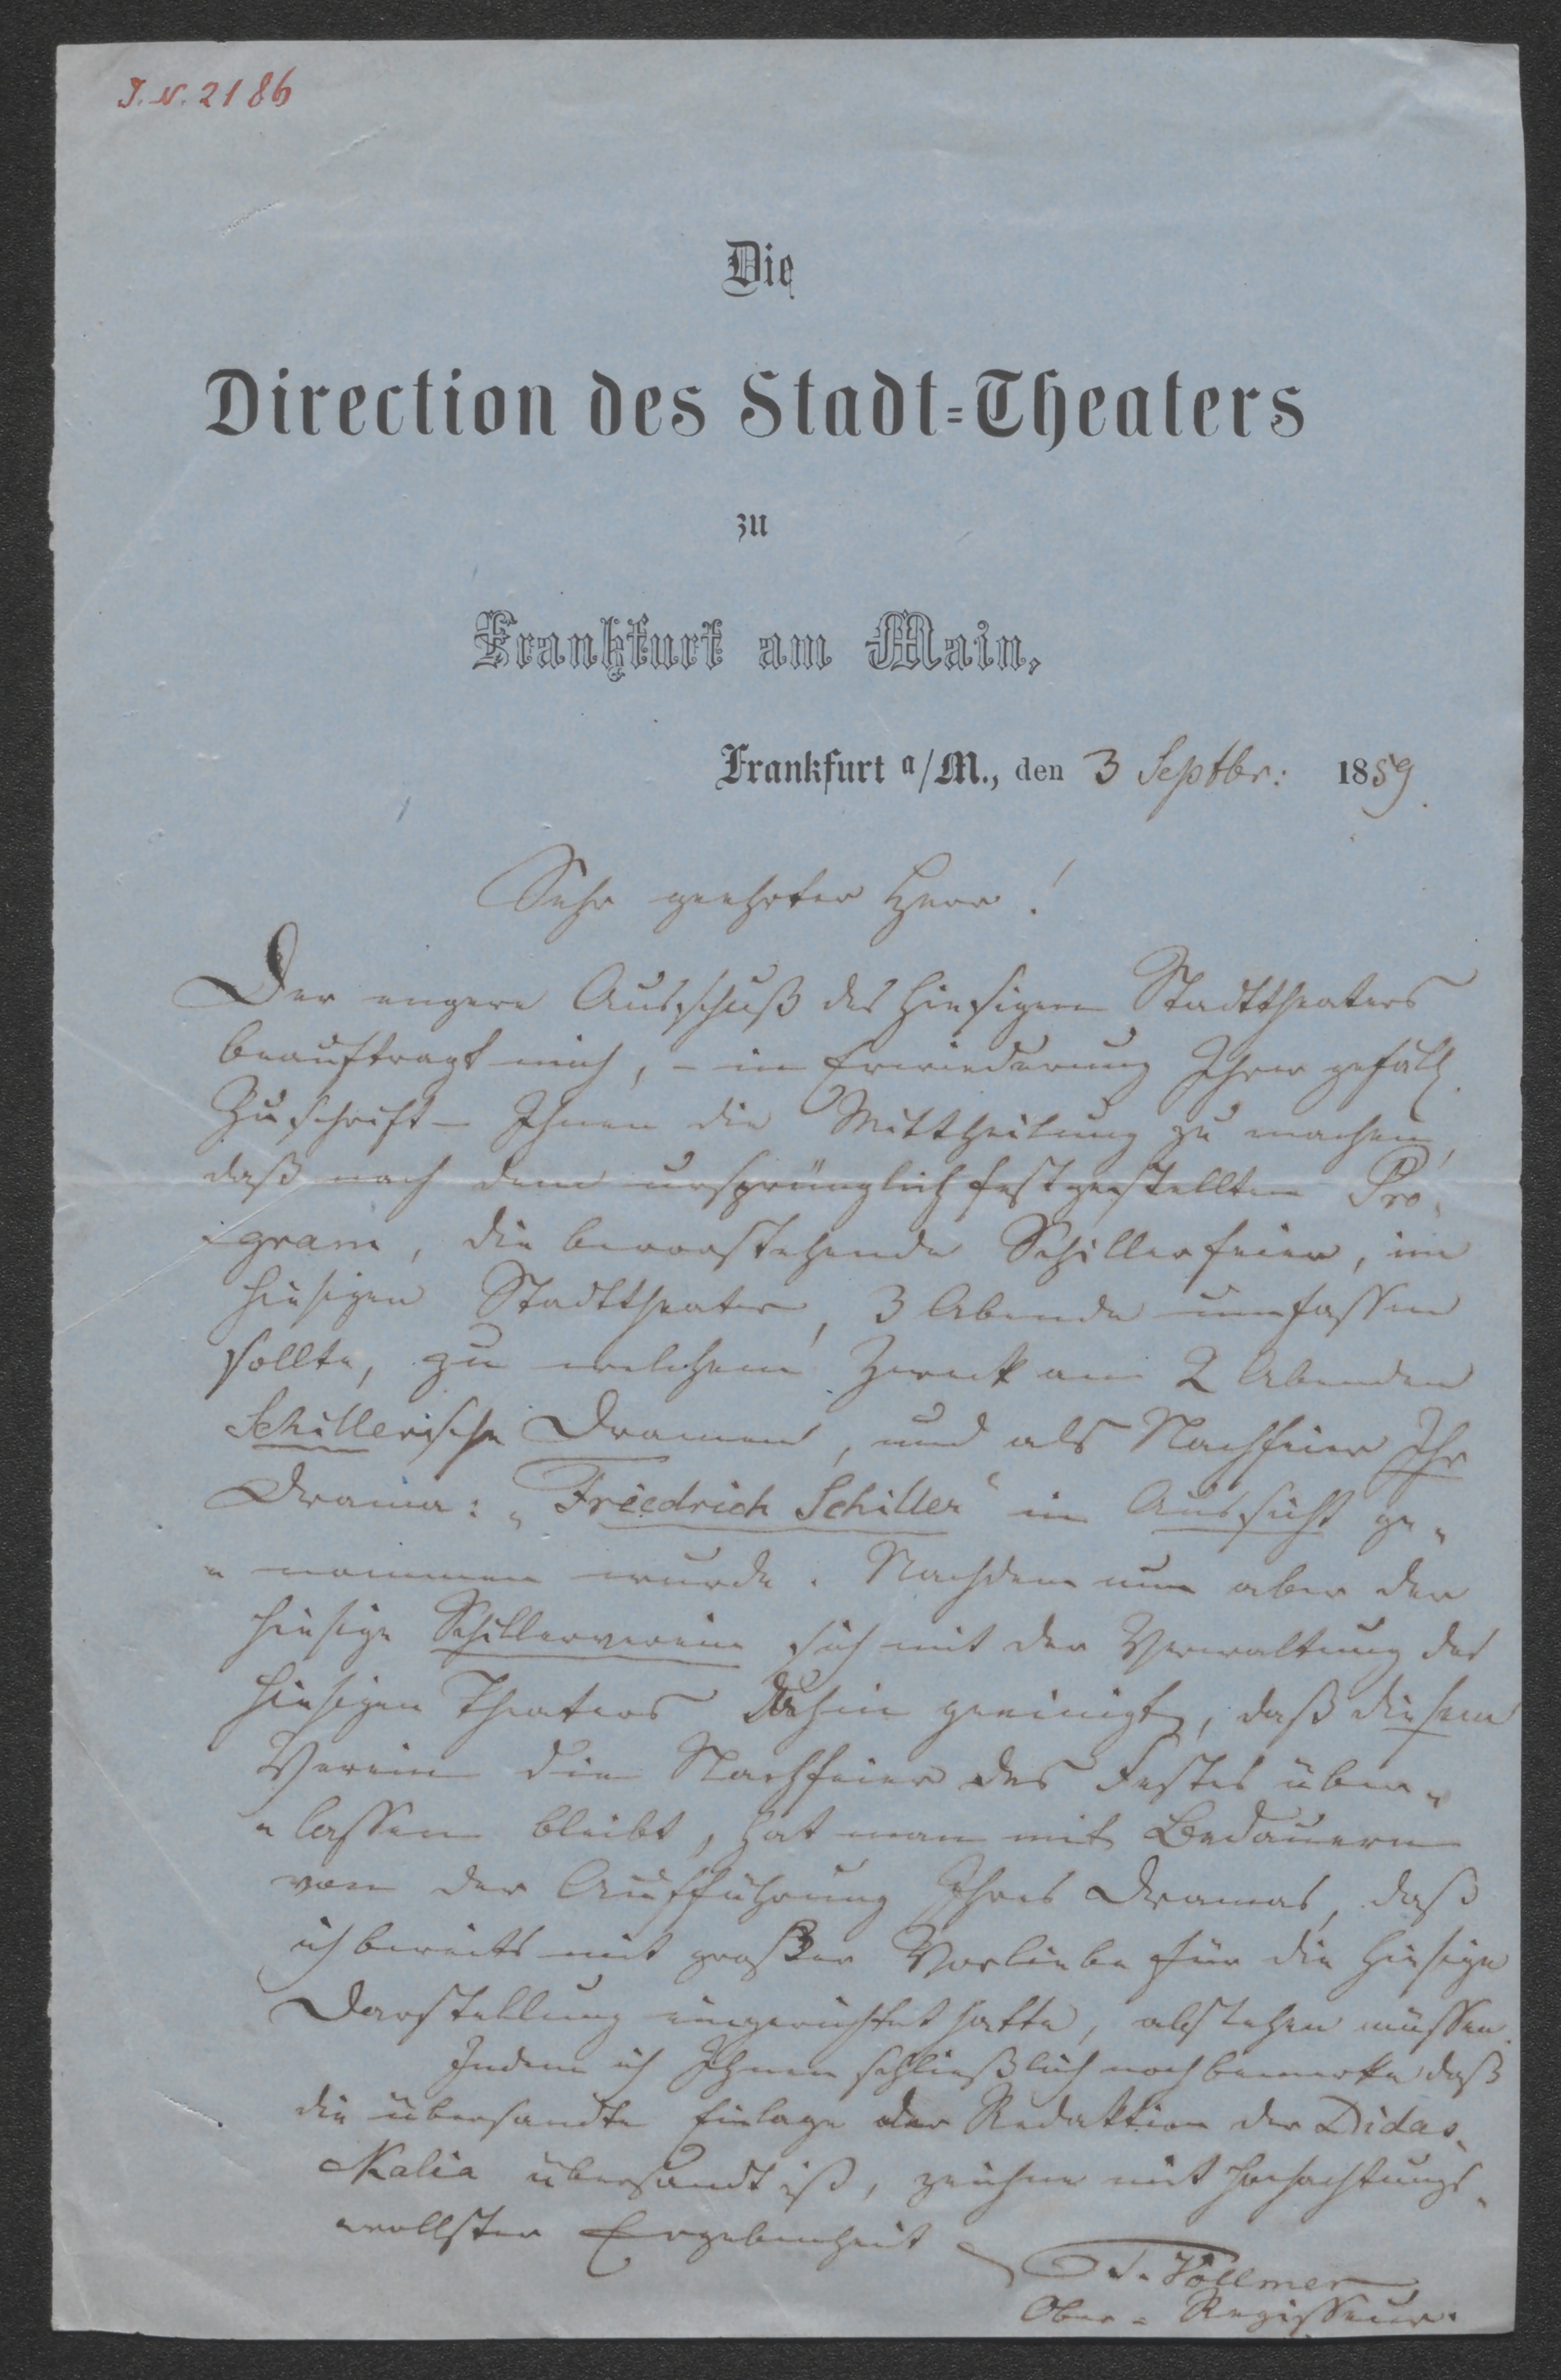 J. N. 2186
Die
Direction des Stadt=Theaters
zu
Frankfurt am Main,
Frankfurt a/M., den 3 Septbr: 1859.
Sehr geehrter Herr!
Der engere Ausschuß des hiesigen Stadttheaters
beauftragt mich, – in Erwiederung Ihrer gefäll.
Zuschrift – Ihnen die Mittheilung zu machen,
daß nach dem ursprünglich festgestellten Pro-
-gram, die bevorstehende Schillerfeier, im
hiesigen Stadttheater, 3 Abende umfassen
sollte, zu welchem Zweck an 2 Abenden
Schillerische Dramen, und als Nachfeier Ihr
Drama: „Friedrich Schiller“ in Aussicht ge-
-nommen wurde. Nachdem nun aber der
hiesige Schillerverein sich mit der Verwaltung des
hiesigen Theaters dahin geeinigt, daß diesem
Verein die Nachfeier des Festes über-
-lassen bleibt, hat man mit Bedauern
von der Aufführung Ihres Dramas, daß
ich bereits mit großer Vorliebe für die hiesige
Darstellung eingerichtet hatte, abstehen müssen.
Indem ich Ihnen schließlich noch bemerke daß
die übersandte Einlage der Redaktion der Didas-
kalia übersandt ist, zeichne mit hochachtungs-
vollster Ergebenheit
Vollmer
Ober-Regisseur.